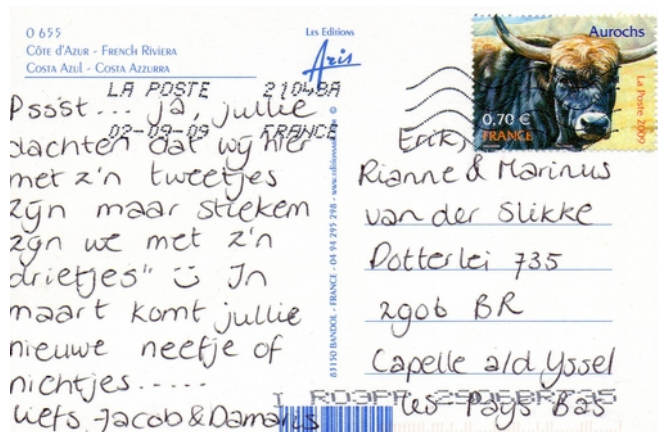 0 655
CÔTE d'AZUR - FRENCH RIVIERA
COSTA AZUL - COSTA AZZURRA
Les Editions
Aris
LA POSTE 21048A
02-09-09 FRANCE
Pssst... ja, jullie
dachten dat wij hier
met z'n tweetjes
zijn maar stiekem
zijn we met z'n
drietjes" ☺ In
maart komt jullie
nieuwe neefje of
nichtjes.....
Liefs Jacob & Damaris
83150 BANDOL - FRANCE - 04 94 295 298 -
Aurochs
La Poste 2009
0,70 €
FRANCE
Erik,
Rianne & Marinus
van der Slikke
Dotterlei 735
2906 BR
Capelle a/d Yssel
Les Pays Bas